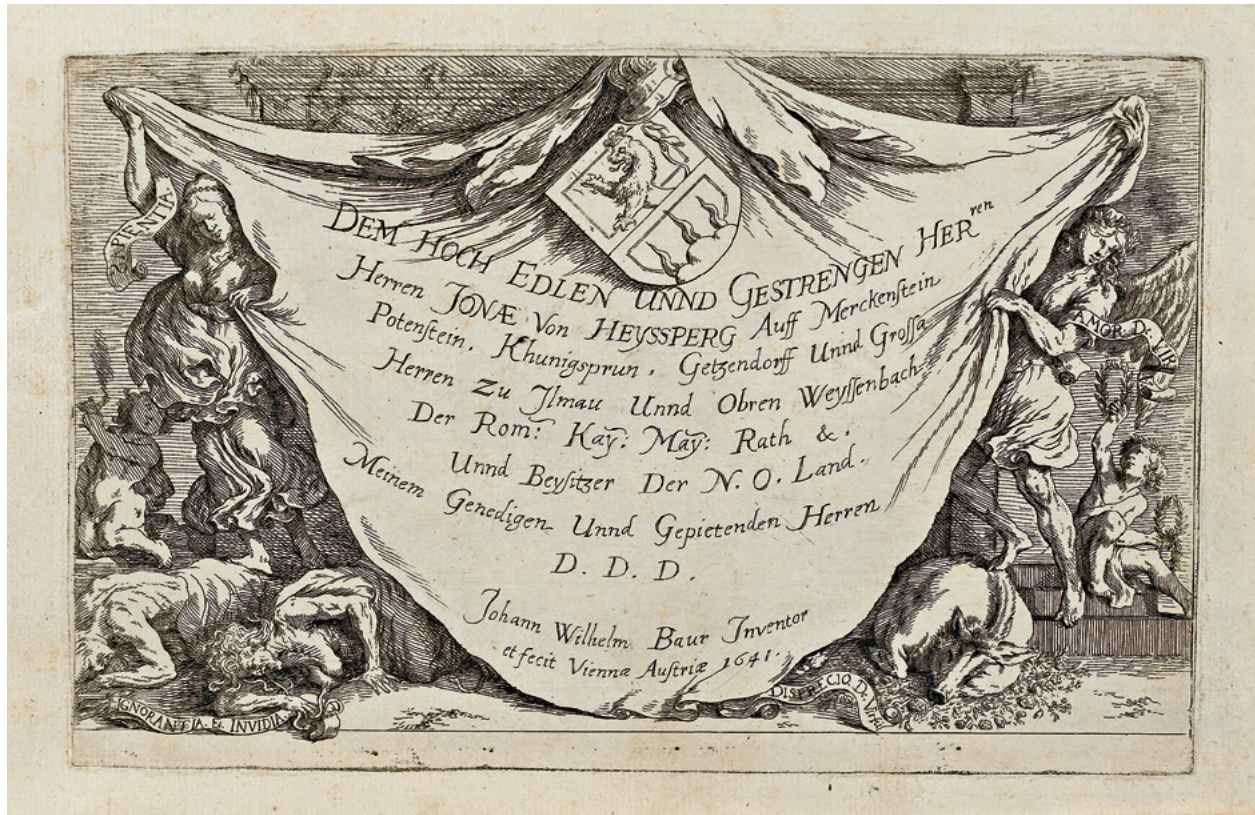 SAPIENTIA
DEM HOCH EDLEN UNND GESTRENGEN HERren
Herren JONÆ Von HEYSSPERG Auff Merckenstein
Potenstein, Khunigsprun, Getzendorff Unnd Grossa
Herren Zu Ilmau Unnd Obren Weyssenbach
Der Rom: Kaÿ: Maÿ: Rath &.
Unnd Beysitzer Der N. O. Land.
Meinem Genedigen Unnd Gepietenden Herren
D. D. D.
Johann Wilhelm Baur Inventor
et fecit Viennæ Austriæ 1641.
AMOR. D.
IGNORANTIA. Et. INVIDIA
DISPREGIO D.